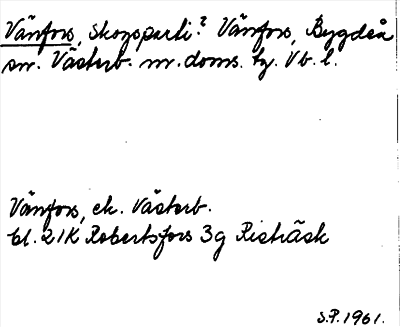 Vänfors, Skogsparti? Vänfors, Bygdeå
sn. Västerb. n. doms. tg. Vb. l.
Vänfors, ek. Västerb.
bl. 21K Robertsfors 3g Risträsk
S.P. 1961.